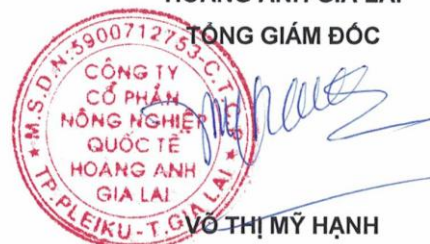 HOÀNG ANH GIA LAI
TỔNG GIÁM ĐỐC
M.S.D.N:5900712753-C.T.C.P
CÔNG TY
CỔ PHẦN
NÔNG NGHIỆP
QUỐC TẾ
HOÀNG ANH
GIA LAI
TP.PLEIKU - T.GIA LAI
VÕ THỊ MỸ HẠNH